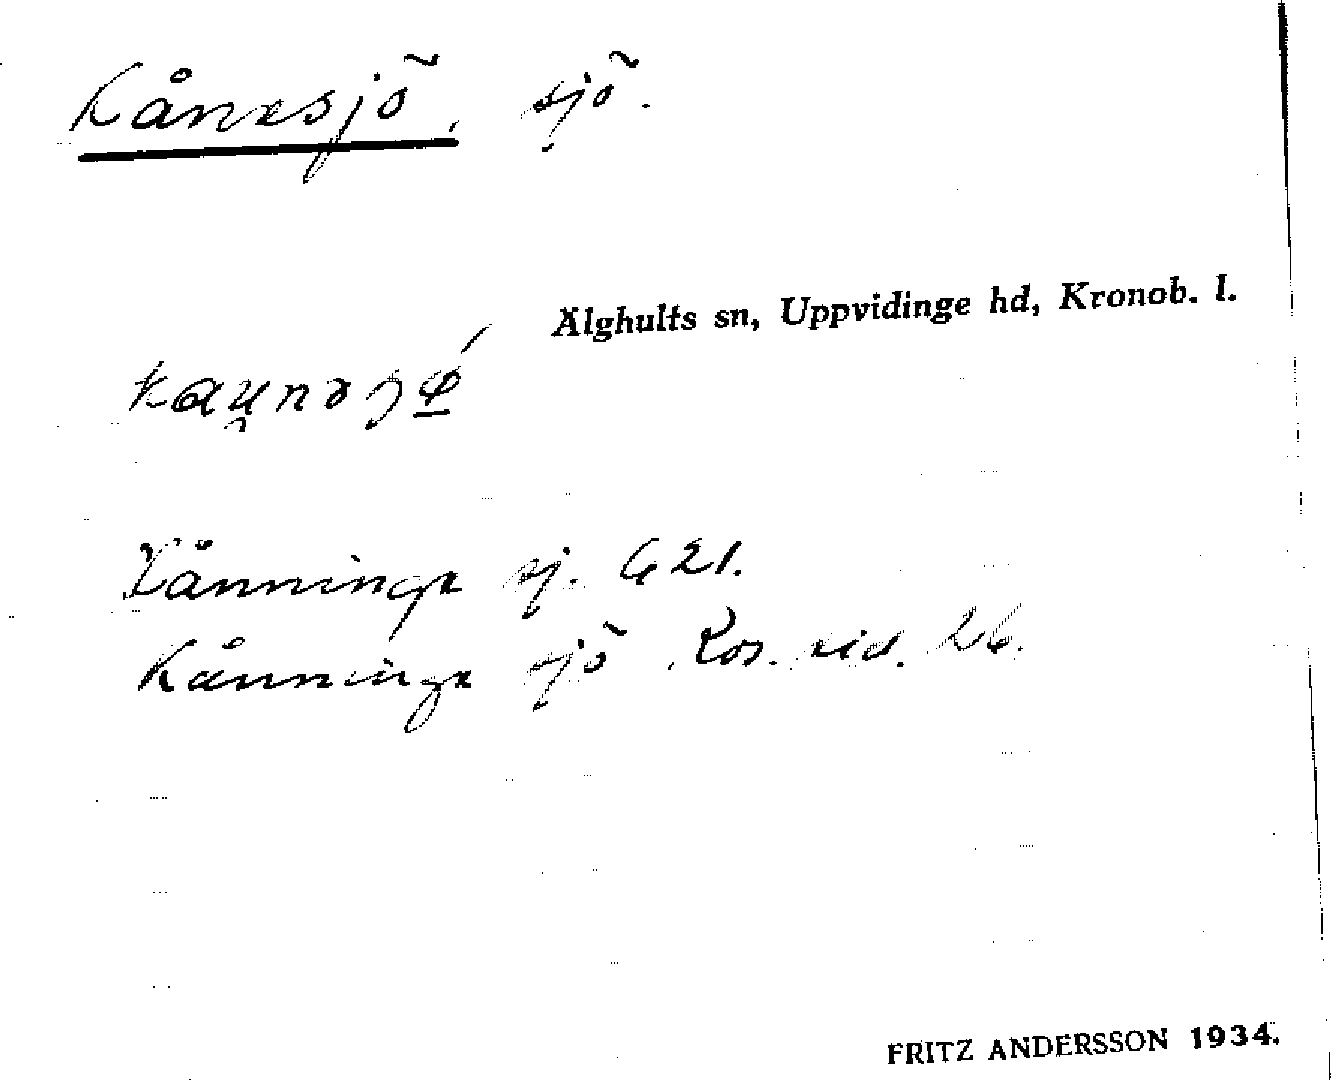 Kånesjö, sjö.
Älghults sn, Uppvidinge hd, Kronob. l.
Kånninge sj. G 21.
Kånninge sjö Ros. sid. 26.
FRITZ ANDERSSON 1934.